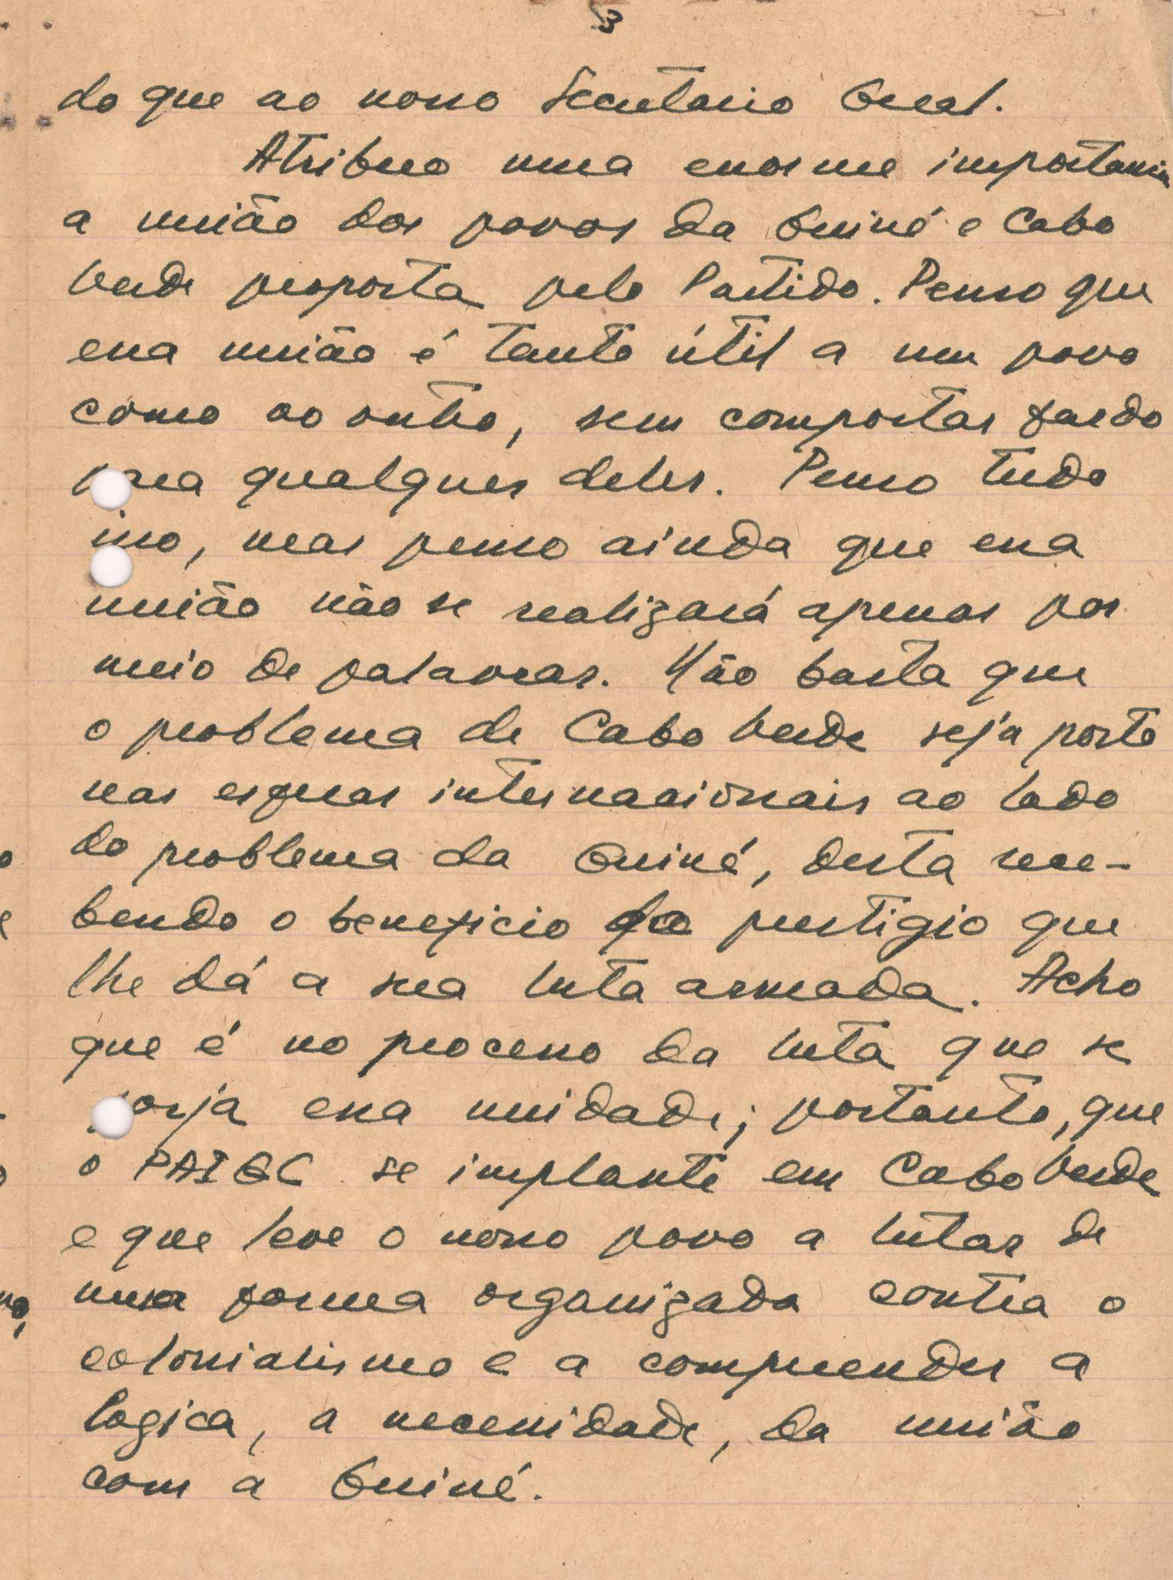 3
do que ao nosso Secretario Geral.
Atribuo uma enorme importancia
a união dos povos da Guiné e Cabo
Verde proposta pelo Partido. Penso que
essa união é tanto útil a um povo
como ao outro, sem comportar fardo
para qualquer deles. Penso tudo
isso, mas penso ainda que essa
união não se realizará apenas por
meio de palavras. Não basta que
o problema de Cabo Verde seja posto
nas esferas internacionais ao lado
do problema da Guiné, desta rece-
bendo o beneficio do prestigio que
lhe dá a sua luta armada. Acho
que é no processo da luta que se
forja essa unidade; portanto, que
o PAIGC se implante em Cabo Verde
e que leve o nosso povo a lutar de
uma forma organizada contra o
colonialismo e a compreender a
logica, a necessidade, da união
com a Guiné.